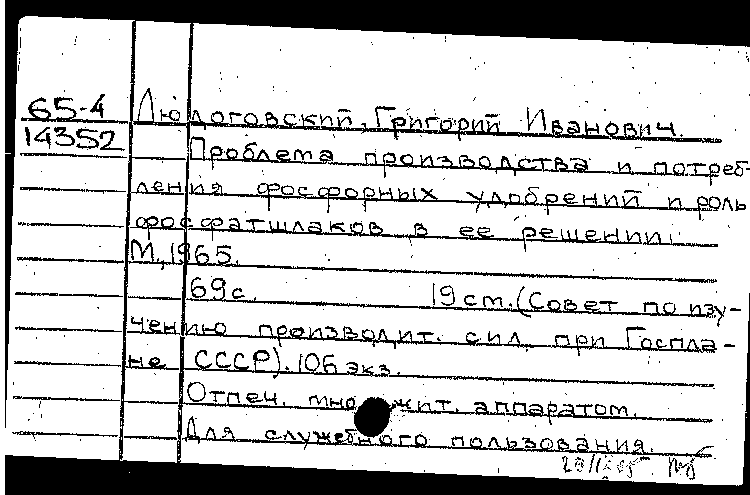 65-4
14352
Людоговский, Григорий Иванович.
Проблема производства и потреб-
ления фосфорных удобрений и роль
фосфатшлаков в ее решении.
М., 1965.
69 с. 19 см. (Совет по изу-
чению производит. сил при Госпла-
не СССР). 106 экз.
Отпеч. множит. аппаратом.
Для служебного пользования.